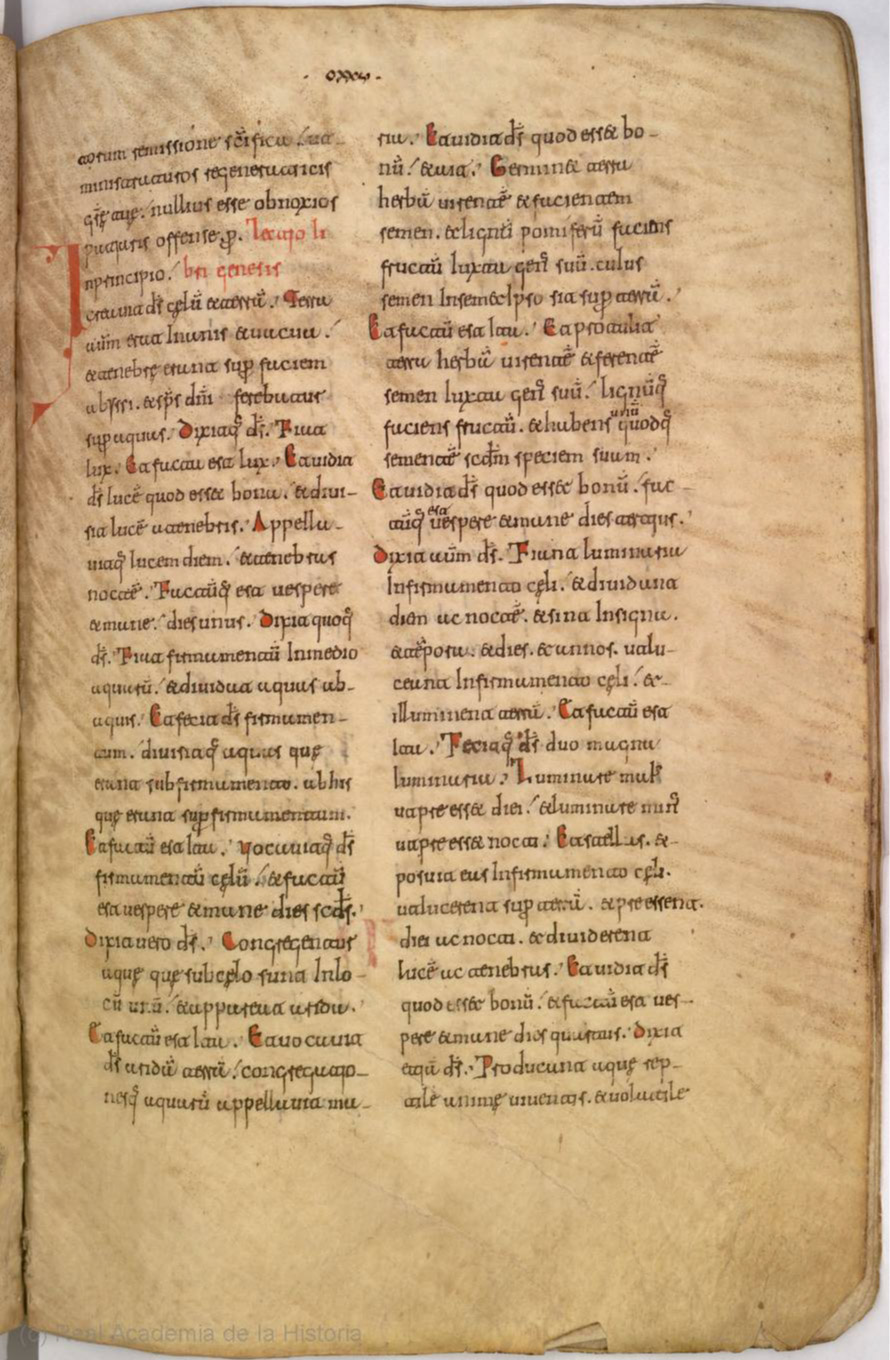 · cxxv ·
torum remissione scīfica. / ua-
minisatutos regeneratricis
aque. nullius esse obnoxios
offense. p̄. Lectio li
Inprincipio. bri genesis
creauit ds̄ cęlū et terrā. Terra
autm̄ erat Inanis et uacua.
et tenebrę erant sup̄ faciem
abyssi. et sp̄s dnī ferebatur
sup̄ aquas. Dixitq̄ ds̄. Fiat
lux. Et facta est lux. Et uidit
ds̄ lucē quod esset bona. et diui-
sit lucē a tenebris. Appella-
uitq̄ lucem diem. et tenebras
noctē. Factūq̄ est uespere
et mane. dies unus. Dixit quoq̄
ds̄. Fiat firmamentū Inmedio
aquarū. et diuidat aquas ab-
aquis. Et fecit ds̄ firmamen-
tum. diuisitq̄ aquas quę
erant subfirmamento. ab his
quę erant sup̄firmamentum.
Et factū est ita. Vocauitq̄ ds̄
firmamentū cęlū. et factū
est uespere et mane dies scds̄.
Dixit uero ds̄. Congregentur
aquę quę subcęlo sunt Inlo-
cū unū. et appareat arida.
Et factū est ita. Et uocauit
ds̄ aridā terrā. congregatio-
nesq̄ aquarū appellauit ma-
ria. Et uidit ds̄ quod esset bo-
nū. et ait. Germinet terra
herbā uirentē et facientem
semen. et lignū pomiferū faciens
fructū iuxta gen̄ suū. cuius
semen Insemetipso sit sup̄ terrā.
Et factū est ita. Et protulit
terra herbā uirentē et ferentē
semen iuxta gen̄ suū. lignūq̄
faciens fructū. et habens unū quodq̄
sementē scdm̄ speciem suam.
Et uidit ds̄ quod esset bonū. fac-
tūq̄ est uespere et mane dies tertius.
Dixit autm̄ ds̄. Fiant luminaria
Infirmamento cęli. et diuidant
diem ac noctē. et sint Insigna.
et tēpora. et dies. et annos. ut lu-
ceant Infirmamento cęli. et-
illuminent terrā. Et factū est
ita. Fecitq̄ ds̄ duo magna
luminaria. Luminare maius
ut preesset diei. et luminare min̄
ut preesset nocti. Et stellas. et-
posuit eas Infirmamento cęli.
ut lucerent sup̄ terrā. et preessent.
diei ac nocti. et diuiderent
lucē ac tenebras. Et uidit ds̄
quod esset bonū. et factū est ues-
pere et mane dies quartus. Dixit
etiā ds̄. Producant aquę rep-
tile animę uiuentis. et uolatile